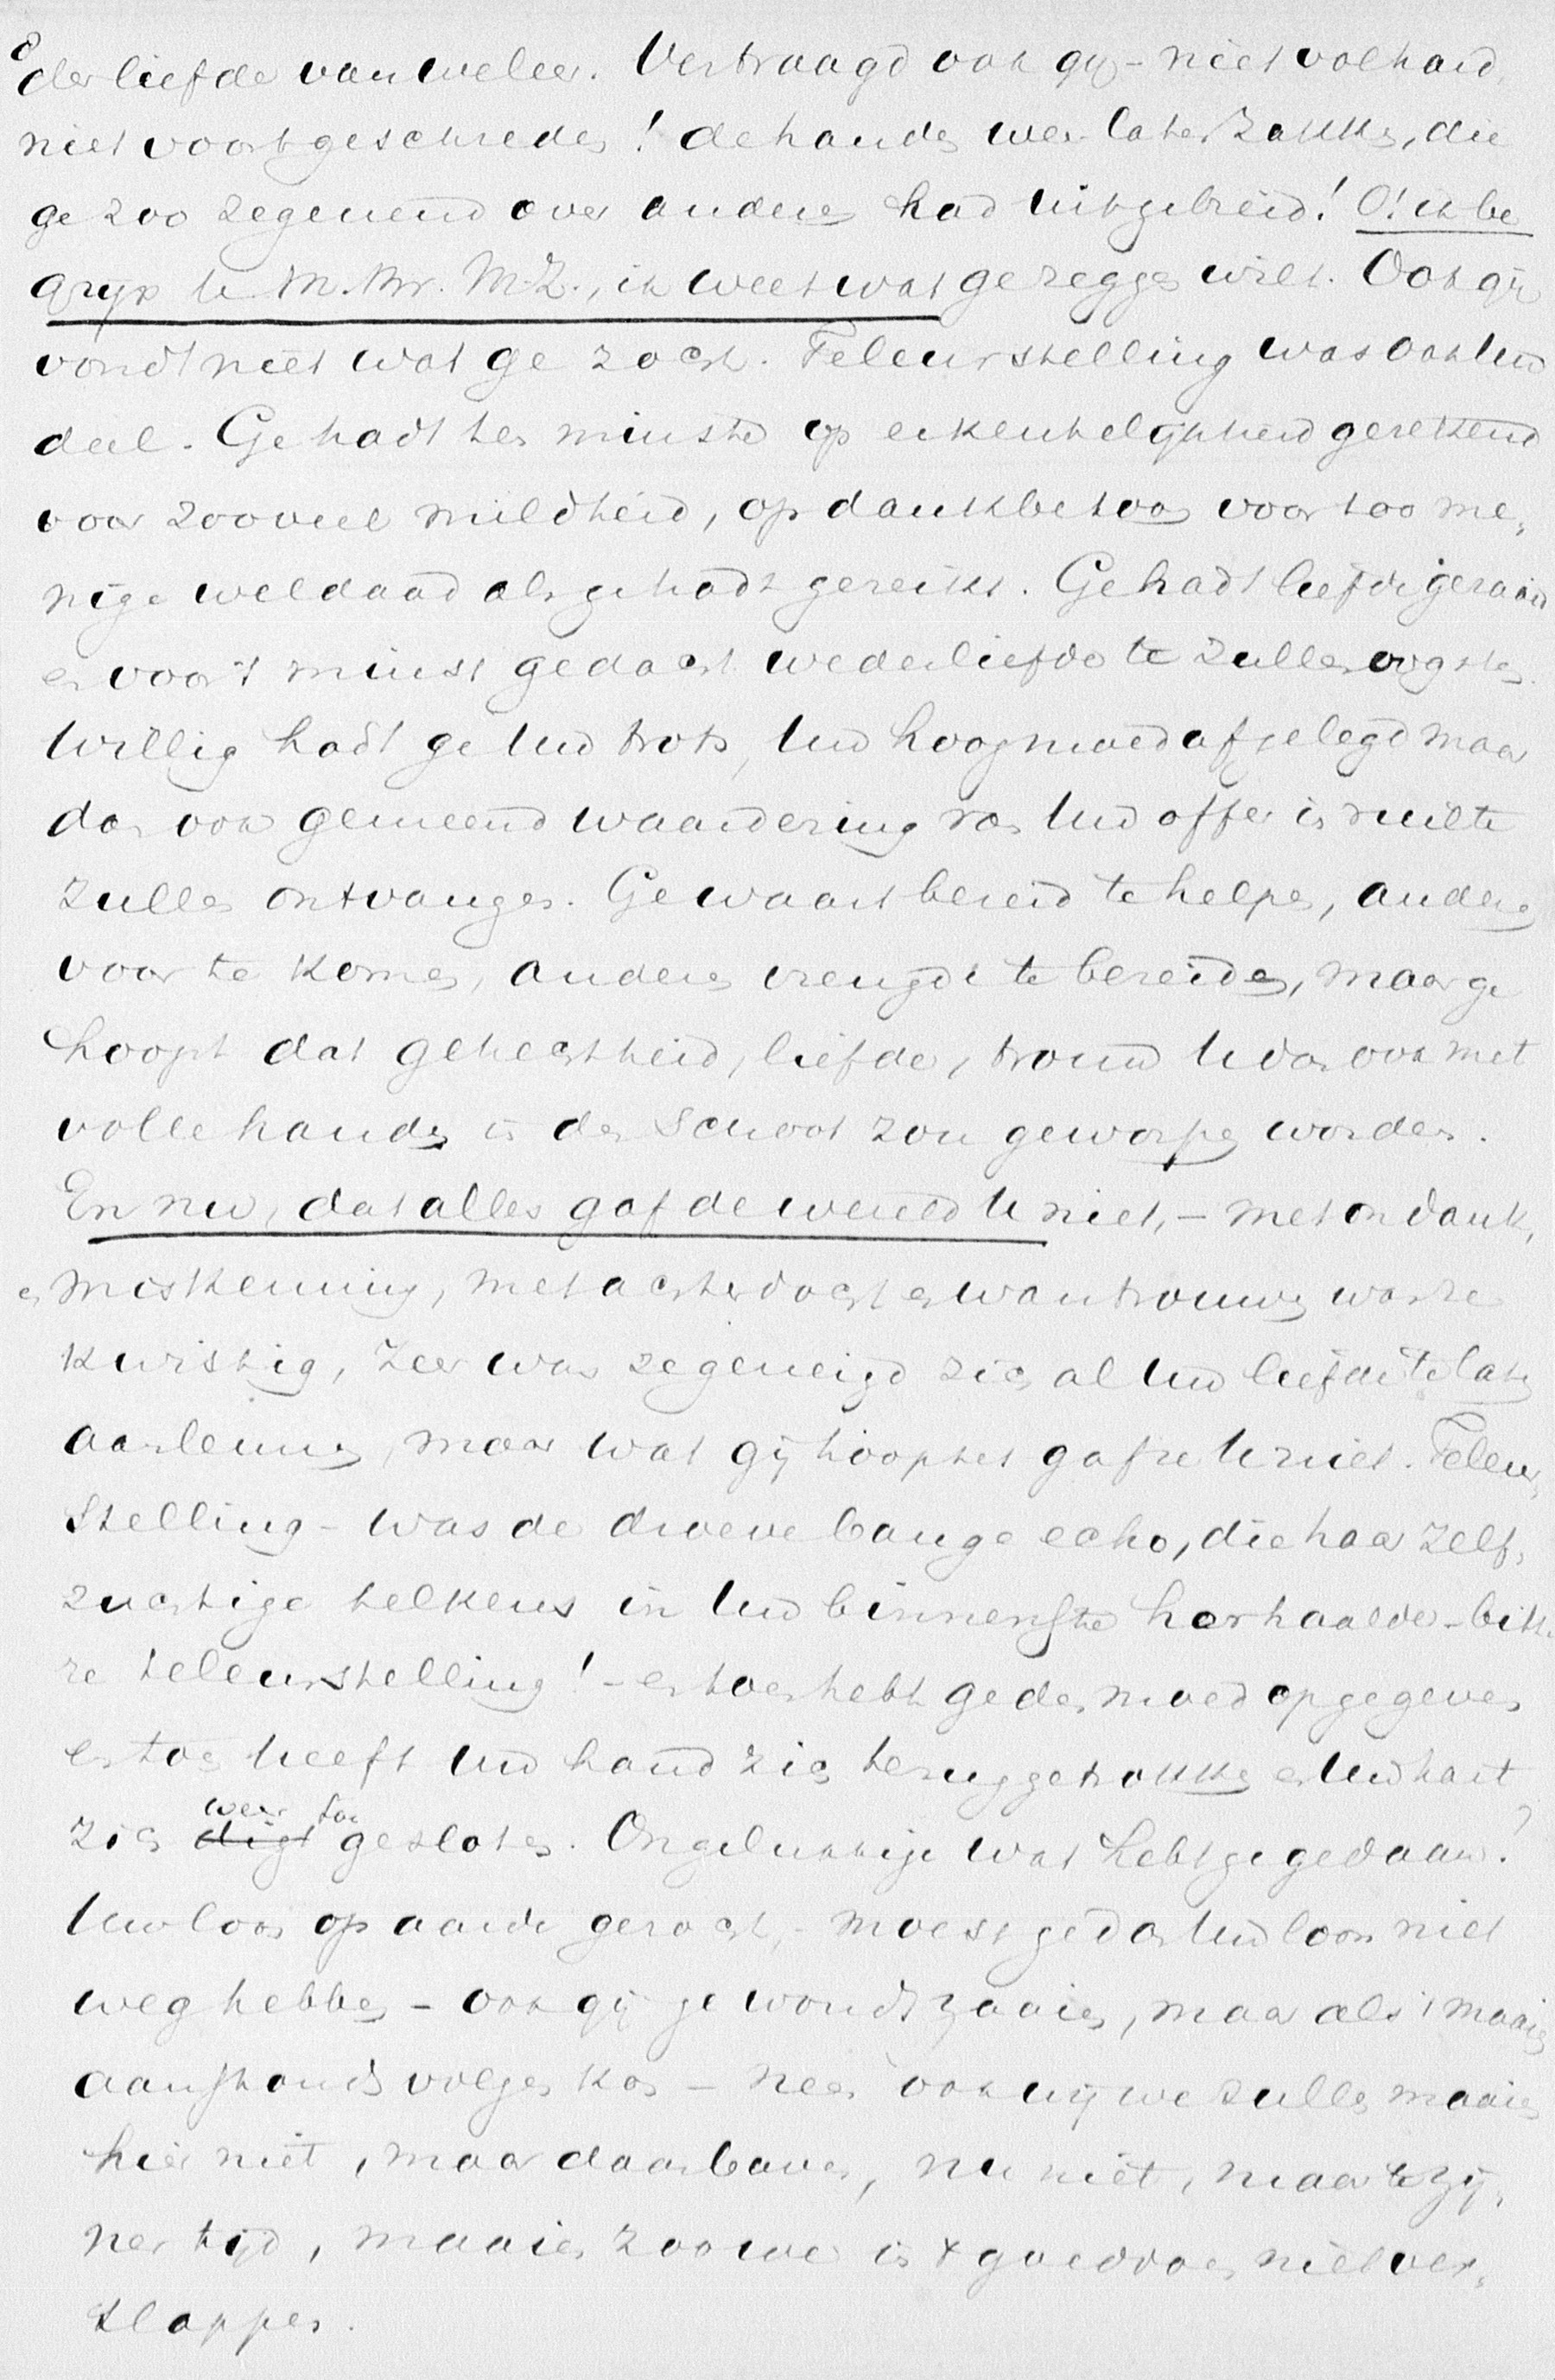 8
der liefde van weleer. Vertraagd ook gij – niet volhard,
niet voortgeschreden! de handen weer laten zakken, die
ge zoo zegenend over anderen had uitgebreid! O! ik be
grijp u M. Br. M. Z., ik weet wat ge zeggen wilt. Ook gij
vondt niet wat ge zocht. Teleurstelling was ook uw
deel. Ge hadt ten minste op erkentelijkheid gerekend
voor zooveel mildheid, op dankbetoon voor zoo me„
nige weldaad als ge hadt gereikt. Ge hadt liefde gezaaid
en voor 't minst gedacht wederliefde te zullen oogsten.
Willig hadt ge uw trots, uw hoogmoed afgelegd maar
dan ook gemeend waardering van uw offer in ruil te
zullen ontvangen. Ge waart bereid te helpen, anderen
voor te komen, anderen vreugde te bereiden, maar ge
hoopt dat gehechtheid, liefde, trouw u dan ook met
volle handen in den schoot zou geworpen worden.
En nu, dat alles gaf de wereld u niet, – met ondank,
en miskenning, met achterdocht en wantrouwen was ze
kwistig, zeer was ze geneigd zich al uw liefde te laten
aanleunen, maar wat gij hooptet gaf ze u niet. Teleur„
stelling – was de droeve bange echo, die haar zelf„
zuchtige telkens in uw binnenste herhaalde – bitte
re teleurstelling! – en toen hebt ge den moed opgegeven
en toen heeft uw hand zich teruggetrokken en uw hart
zich digt weer toe gesloten. Ongelukkige wat hebt ge gedaan?
Uw loon op aarde gezocht, – moest ge dan uw loon niet
weg hebben – ook gij ge wondt zaaien, maar als 't maaien
aanstonds volgen kon – Neen ook wij we zullen maaien
hier niet, maar daarboven, nu niet, maar te zij„
ner tijd, maaien zoo we in 't goeddoen niet ver„
slappen.